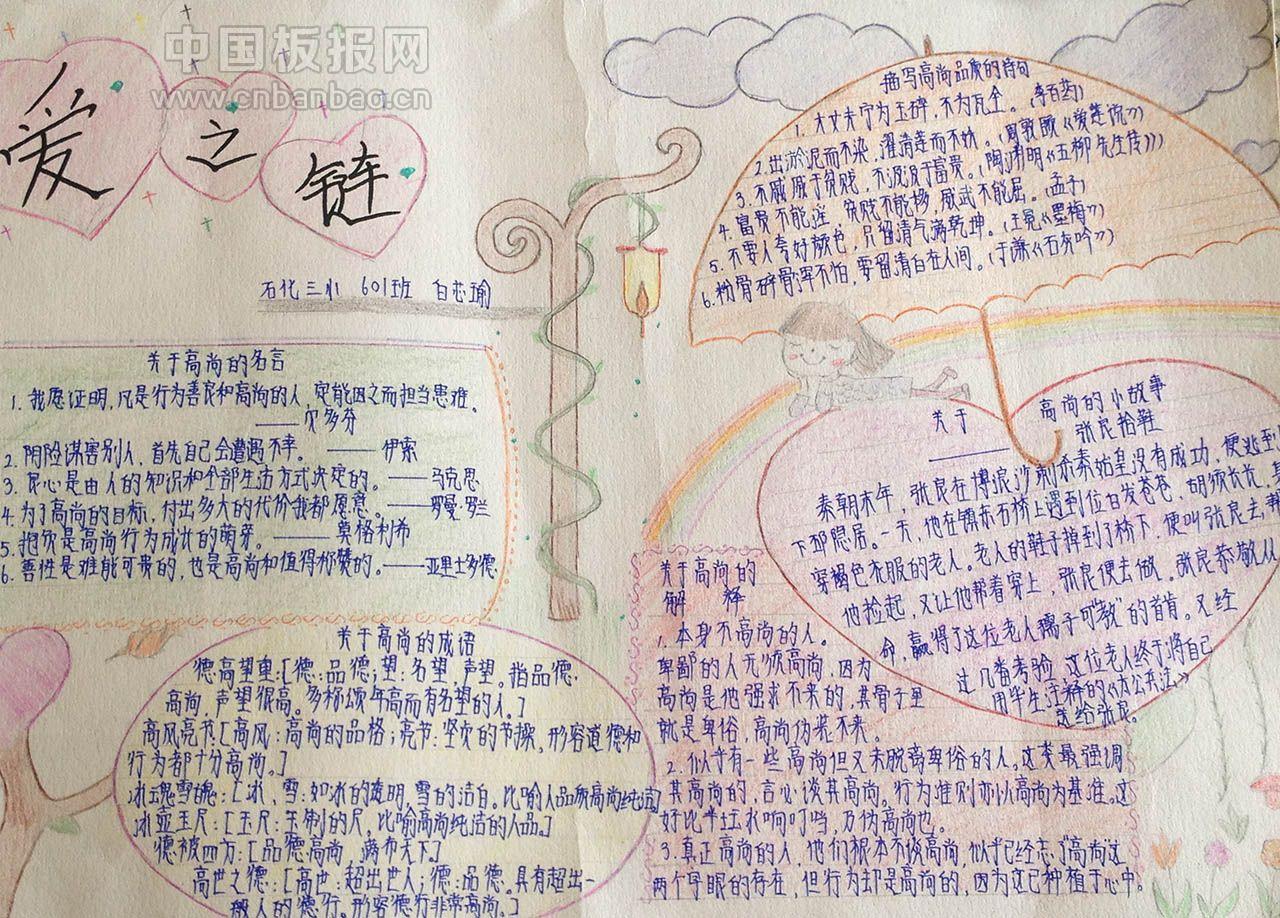 中国板报网
www.cnbanbao.cn
爱之链
石化三小 601班 白芯瑜
关于高尚的名言
1. 我愿证明,凡是行为善良和高尚的人,定能因之而担当患难。
——贝多芬
2. 阴险谋害别人,首先自己会遭遇不幸。——伊索
3. 良心是由人的知识和全部生活方式决定的。——马克思
4. 为了高尚的目标,付出多大的代价我都愿意。——罗曼·罗兰
5. 抱负是高尚行为成长的萌芽。——莫格利希
6. 善性是难能可贵的,也是高尚和值得称赞的。——亚里士多德
关于高尚的成语
德高望重:[德:品德;望:名望,声望。指品德
高尚,声望很高。多称颂年高而有名望的人。]
高风亮节[高风:高尚的品格;亮节:坚贞的节操。形容道德和
行为都十分高尚。]
冰魂雪魄:[冰、雪:如冰的透明,雪的洁白。比喻人品质高尚纯洁]
冰壶玉尺:[玉尺:玉制的尺,比喻高尚纯洁的人品。]
德被四方:[品德高尚,满布天下]
高世之德:[高世:超出世人;德:品德。具有超出一
般人的德行。形容德行非常高尚。]
描写高尚品质的诗句
1. 大丈夫宁为玉碎,不为瓦全。(李百药)
2. 出淤泥而不染,濯清莲而不妖。(周敦颐《爱莲说》)
3. 不戚戚于贫贱,不汲汲于富贵。(陶渊明《五柳先生传》)
4. 富贵不能淫,贫贱不能移,威武不能屈。(孟子)
5. 不要人夸好颜色,只留清气满乾坤。(王冕《墨梅》)
6. 粉骨碎骨浑不怕,要留清白在人间。(于谦《石灰吟》)
关于高尚的小故事
——张良拾鞋
秦朝末年,张良在博浪沙刺杀秦始皇没有成功,便逃到
下邳隐居。一天,他在镇东石桥上遇到位白发苍苍,胡须长长,
穿褐色衣服的老人。老人的鞋子掉到了桥下,便叫张良去帮
他捡起,又让他帮着穿上,张良便去做。张良恭敬从
命,赢得了这位老人"孺子可教"的首肯。又经
过几番考验,这位老人终于将自己
用毕生注释的《太公兵法》
送给张良。
关于高尚的
解释
1. 本身不高尚的人。
卑鄙的人无须高尚,因为
高尚是他强求不来的,其骨子里
就是卑俗,高尚伪装不来。
2. 似乎有一些高尚但又未脱离卑俗的人。这类最强调
其高尚的,言必谈其高尚。行为准则亦以高尚为基准。这
好比半坛水响叮当,乃伪高尚也。
3. 真正高尚的人,他们根本不谈高尚,似乎已经忘了高尚这
两个字眼的存在,但行为却是高尚的,因为这已种植于心中。